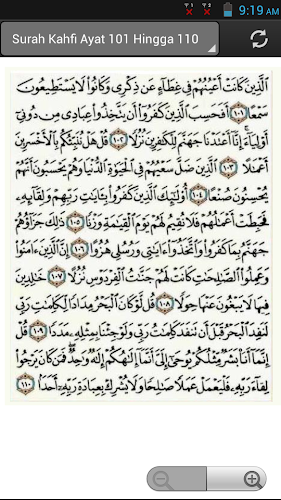 9:19 AM
Surah Kahfi Ayat 101 Hingga 110
الَّذِينَ كَانَتْ أَعْيُنُهُمْ فِي غِطَاءٍ عَن ذِكْرِي وَكَانُوا لَا يَسْتَطِيعُونَ
سَمْعًا ١٠١ أَفَحَسِبَ الَّذِينَ كَفَرُوا أَن يَتَّخِذُوا عِبَادِي مِن دُونِي
أَوْلِيَاءَ إِنَّا أَعْتَدْنَا جَهَنَّمَ لِلْكَافِرِينَ نُزُلًا ١٠٢ قُلْ هَلْ نُنَبِّئُكُم بِالْأَخْسَرِينَ
أَعْمَالًا ١٠٣ الَّذِينَ ضَلَّ سَعْيُهُمْ فِي الْحَيَوٰةِ الدُّنْيَا وَهُمْ يَحْسَبُونَ أَنَّهُمْ
يُحْسِنُونَ صُنْعًا ١٠٤ أُولَٰئِكَ الَّذِينَ كَفَرُوا بِآيَاتِ رَبِّهِمْ وَلِقَائِهِ
فَحَبِطَتْ أَعْمَالُهُمْ فَلَا نُقِيمُ لَهُمْ يَوْمَ الْقِيَامَةِ وَزْنًا ١٠٥ ذَٰلِكَ جَزَاؤُهُمْ
جَهَنَّمُ بِمَا كَفَرُوا وَاتَّخَذُوا آيَاتِي وَرُسُلِي هُزُوًا ١٠٦ إِنَّ الَّذِينَ آمَنُوا
وَعَمِلُوا الصَّالِحَاتِ كَانَتْ لَهُمْ جَنَّاتُ الْفِرْدَوْسِ نُزُلًا ١٠٧ خَالِدِينَ
فِيهَا لَا يَبْغُونَ عَنْهَا حِوَلًا ١٠٨ قُل لَّوْ كَانَ الْبَحْرُ مِدَادًا لِّكَلِمَاتِ رَبِّي
لَنَفِدَ الْبَحْرُ قَبْلَ أَن تَنفَدَ كَلِمَاتُ رَبِّي وَلَوْ جِئْنَا بِمِثْلِهِ مَدَدًا ١٠٩ قُلْ
إِنَّمَا أَنَا بَشَرٌ مِّثْلُكُمْ يُوحَىٰ إِلَيَّ أَنَّمَا إِلَٰهُكُمْ إِلَٰهٌ وَاحِدٌ فَمَن كَانَ يَرْجُوا
لِقَاءَ رَبِّهِ فَلْيَعْمَلْ عَمَلًا صَالِحًا وَلَا يُشْرِكْ بِعِبَادَةِ رَبِّهِ أَحَدًا ١١٠